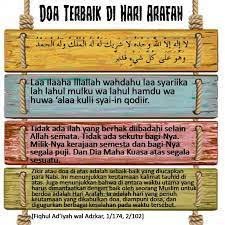 Doa Terbaik di Hari Arafah
لا إله إلا الله وحده لا شريك له له الملك وله الحمد
وهو على كل شيء قدير
Laa Ilaaha Illallah wahdahu laa syariika
lah lahul mulku wa lahul hamdu wa
huwa 'alaa kulli syai-in qodiir.
Tidak ada ilah yang berhak diibadahi selain
Allah semata. Tidak ada sekutu bagi-Nya.
Milik-Nya kerajaan semesta dan bagi-Nya
segala puji. Dan Dia Maha Kuasa atas segala
sesuatu.
Zikir atau doa di atas adalah sebaik-baik yang diucapkan
para Nabi. Ini menunjukkan keutamaan kalimat tauhid di
atas. Juga menunjukkan bahwa di antara waktu utama yang
harus dimanfaatkan dengan baik oleh seorang Muslim untuk
berdoa adalah hari Arafah. Ia adalah hari yang penuh
keutamaan yang dikabulkan doa, diampuni dosa, dan
digugurkan berbagai kesalahan pada waktu tersebut.
[Fiqhul Ad'iyah wal Adzkar, 1/174, 2/102]